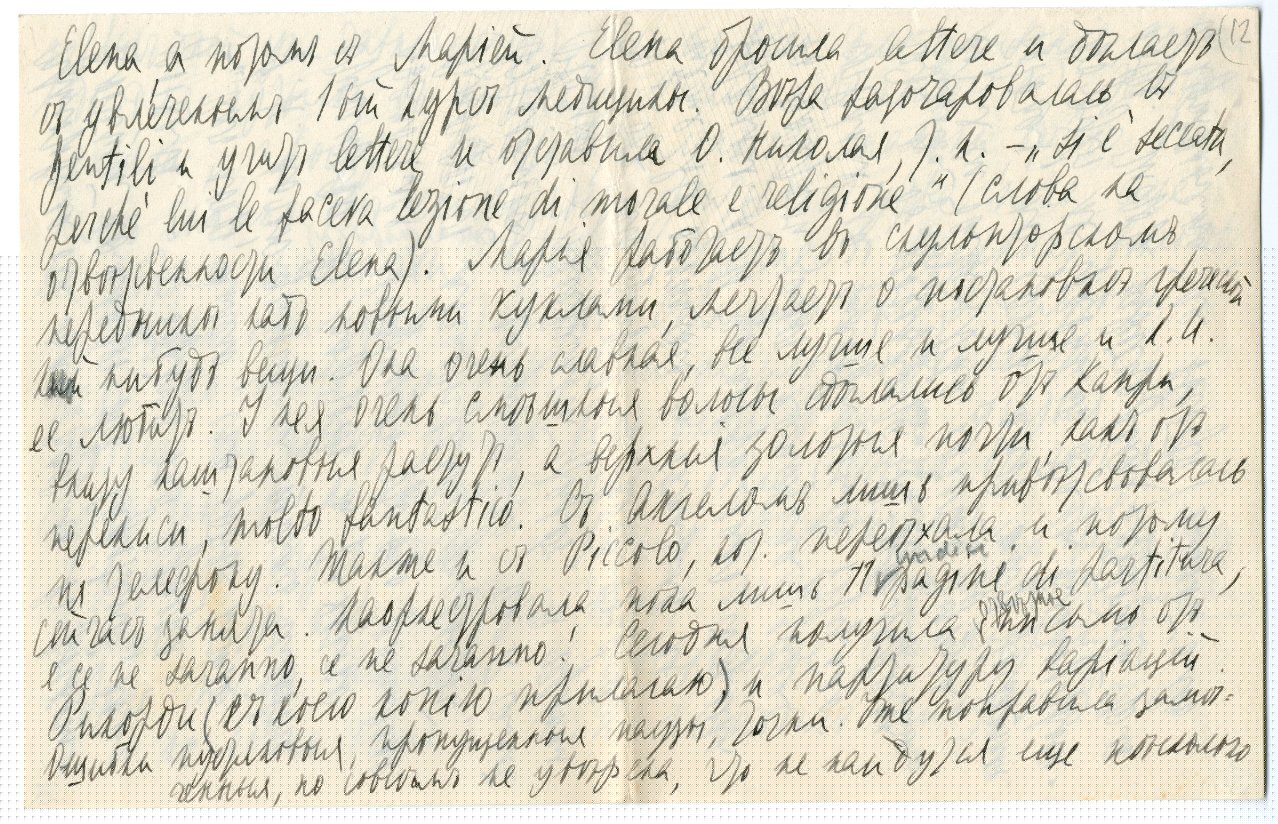 (12
Elena, а потомъ съ Маріей. Elena бросила lettere и дѣлаетъ
съ увлеченіемъ 1ый курсъ медицины. Вѣра разочаровалась въ
Gentili и учитъ lettere и оставила О. Николая, т. к. – „si è seccata,
perché lui le faceva lezione di morale e religione" (слова на
отвѣтственности Elena). Марія работаетъ въ скульпторскомъ
передникѣ надъ новыми куклами, мечтаетъ о постановкѣ греческой
нибудь вещи. Она очень славная, все лучше и лучше и
ее любитъ. У нея очень смѣшные волосы сдѣлались отъ Капри,
внизу каштановые растутъ, а верхніе золотые почти, какъ отъ
перекиси, molto fantastico. Съ Ангеломъ лишь привѣтствовалась
по телефону. Также и съ Piccolo, кот. переѣхала и потому
сейчасъ занята. Наоркестровала пока лишь 11 pagine di partitura,
e ce ne saranno, ce ne saranno! Сегодня получила отвѣтное письмо отъ
Рикорди (съ коего копію прилагаю) и партитуру варіацій.
Ошибки пустяковыя, пропущенныя паузы, точки. Уже поправила замѣ-
ченныя, но совсѣмъ не увѣрена, что не найдутся еще нѣсколько